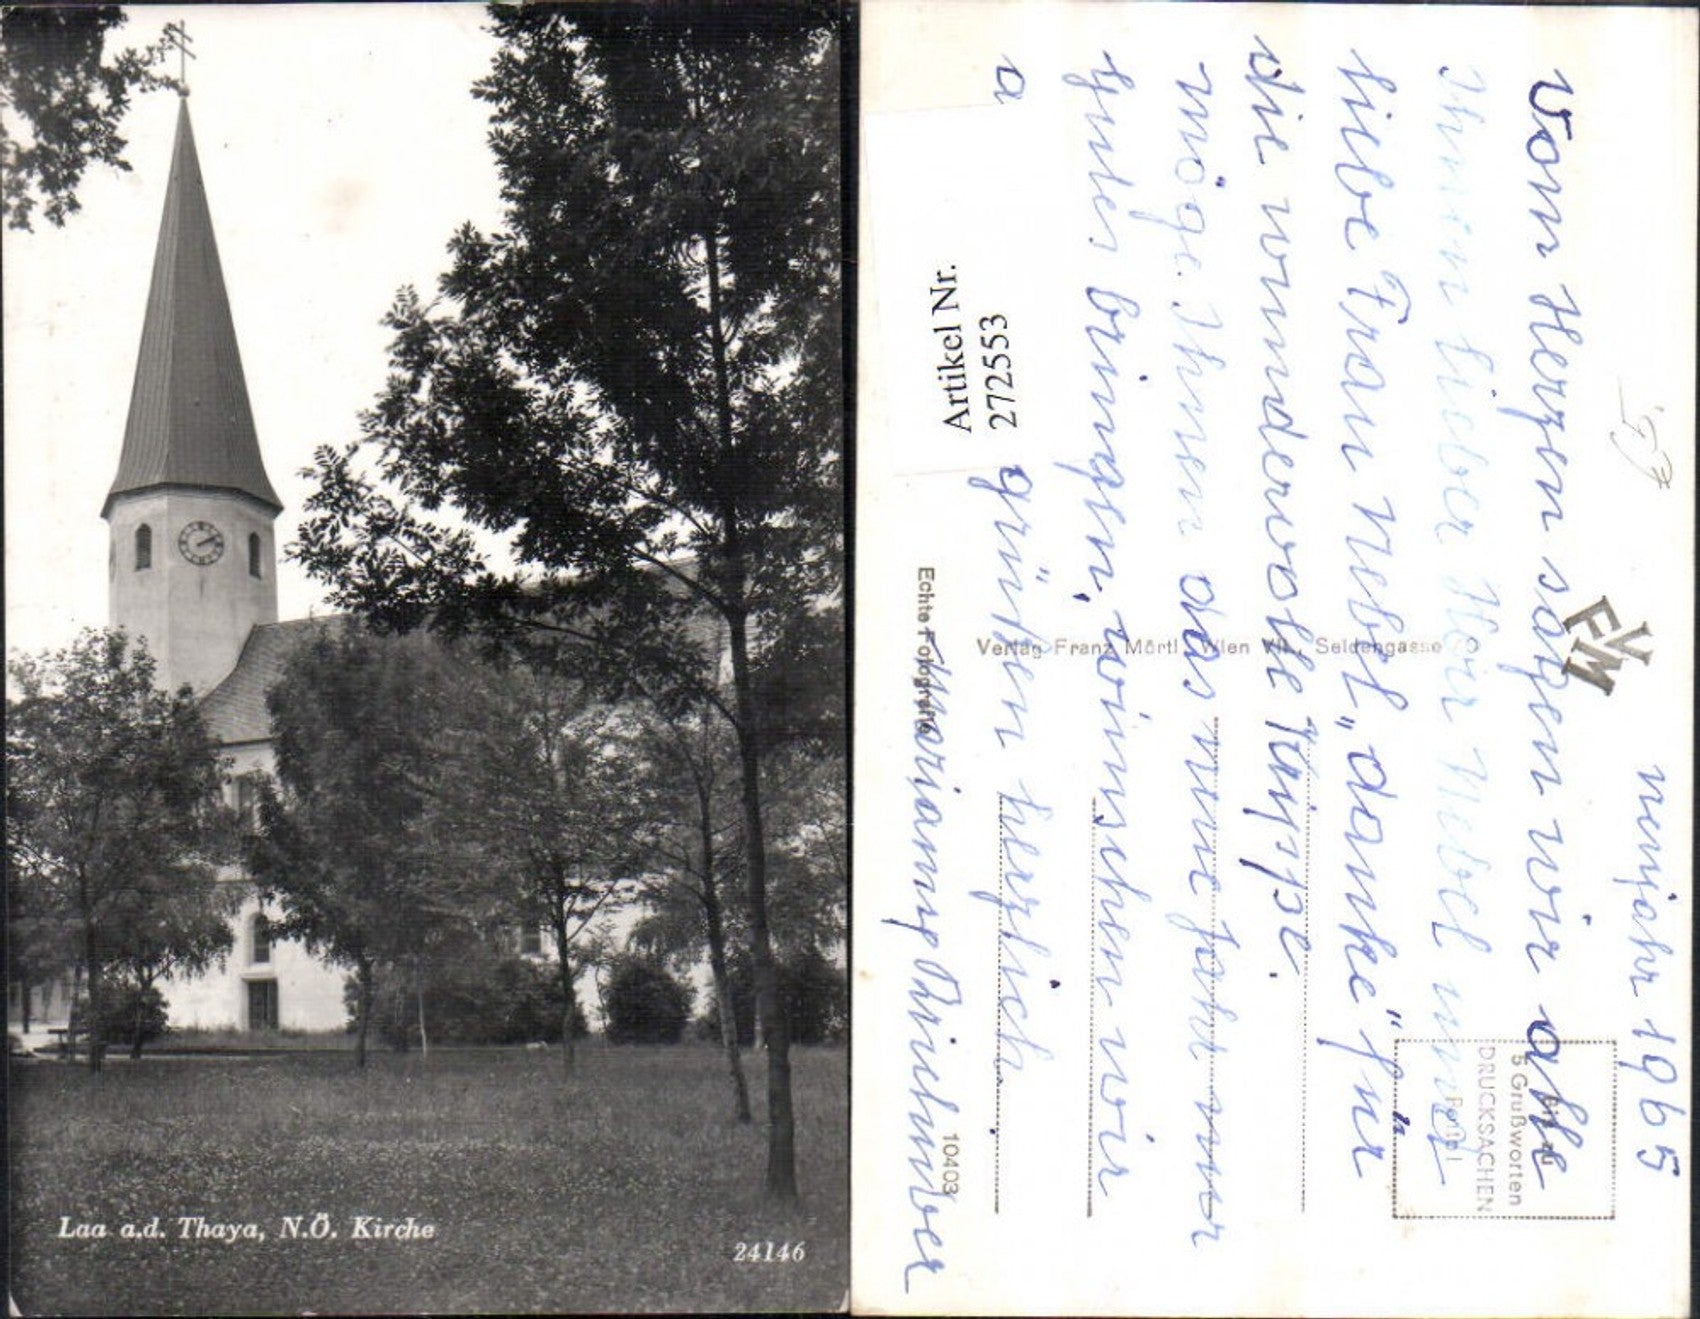 Laa a.d. Thaya, N.Ö. Kirche
24146
Neujahr 1965
Vom Herzen sagen wir alle
Ihnen lieber Herr Nebel und
liebe Frau Nebel „danke" für
die wundervolle Krippe.
Möge Ihnen das neue Jahr nur
Gutes bringen, wünschen wir
a
grüßen herzlich
Artikel Nr.
272553
Echte Fotografie
10403
Verlag Franz Mörtl, Wien VII., Seidengasse
VFM
Bis zu
5 Grußworten
DRUCKSACHEN
Porto!